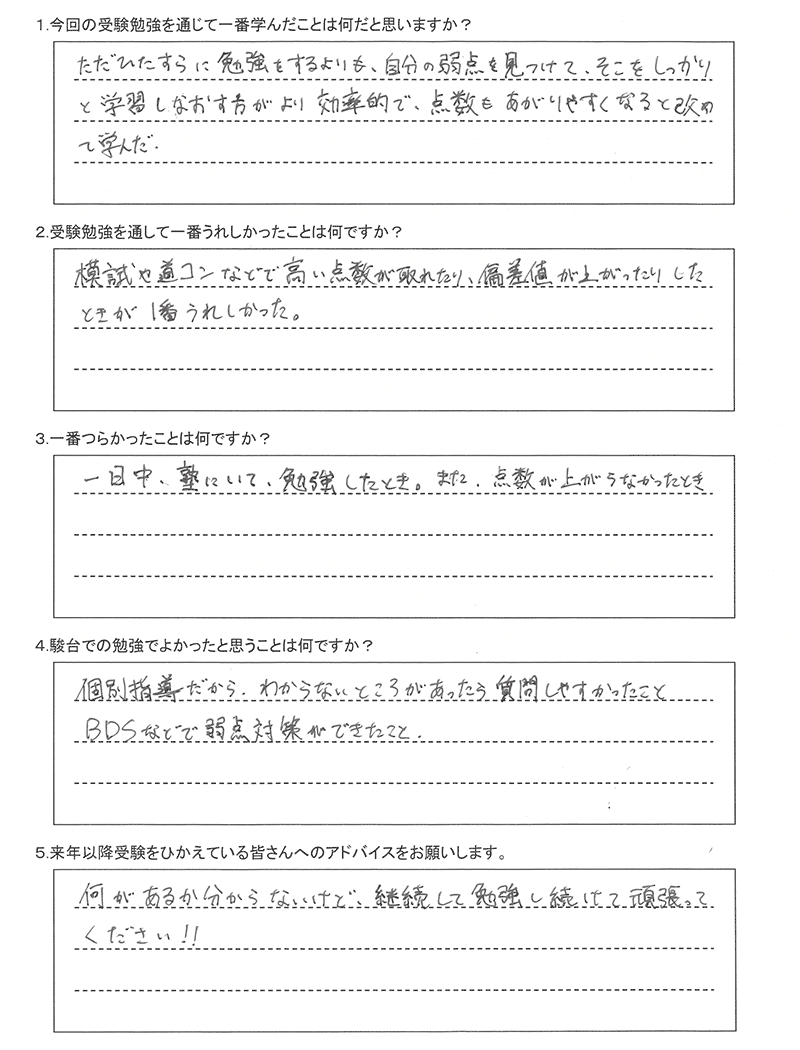 1.今回の受験勉強を通じて一番学んだことは何だと思いますか？
ただひたすらに勉強をするよりも、自分の弱点を見つけて、そこをしっかり
と学習しなおす方がより効率的で、点数もあがりやすくなると改め
て学んだ.
2.受験勉強を通して一番うれしかったことは何ですか？
模試や道コンなどで高い点数が取れたり、偏差値が上がったりした
ときが1番うれしかった。
3.一番つらかったことは何ですか？
一日中、塾にいて、勉強したとき。また、点数が上がらなかったとき
4.駿台での勉強でよかったと思うことは何ですか？
個別指導だから、わからないところがあったら質問しやすかったこと
BDSなどで弱点対策ができたこと.
5.来年以降受験をひかえている皆さんへのアドバイスをお願いします。
何があるか分からないけど、継続して勉強し続けて頑張って
ください!!